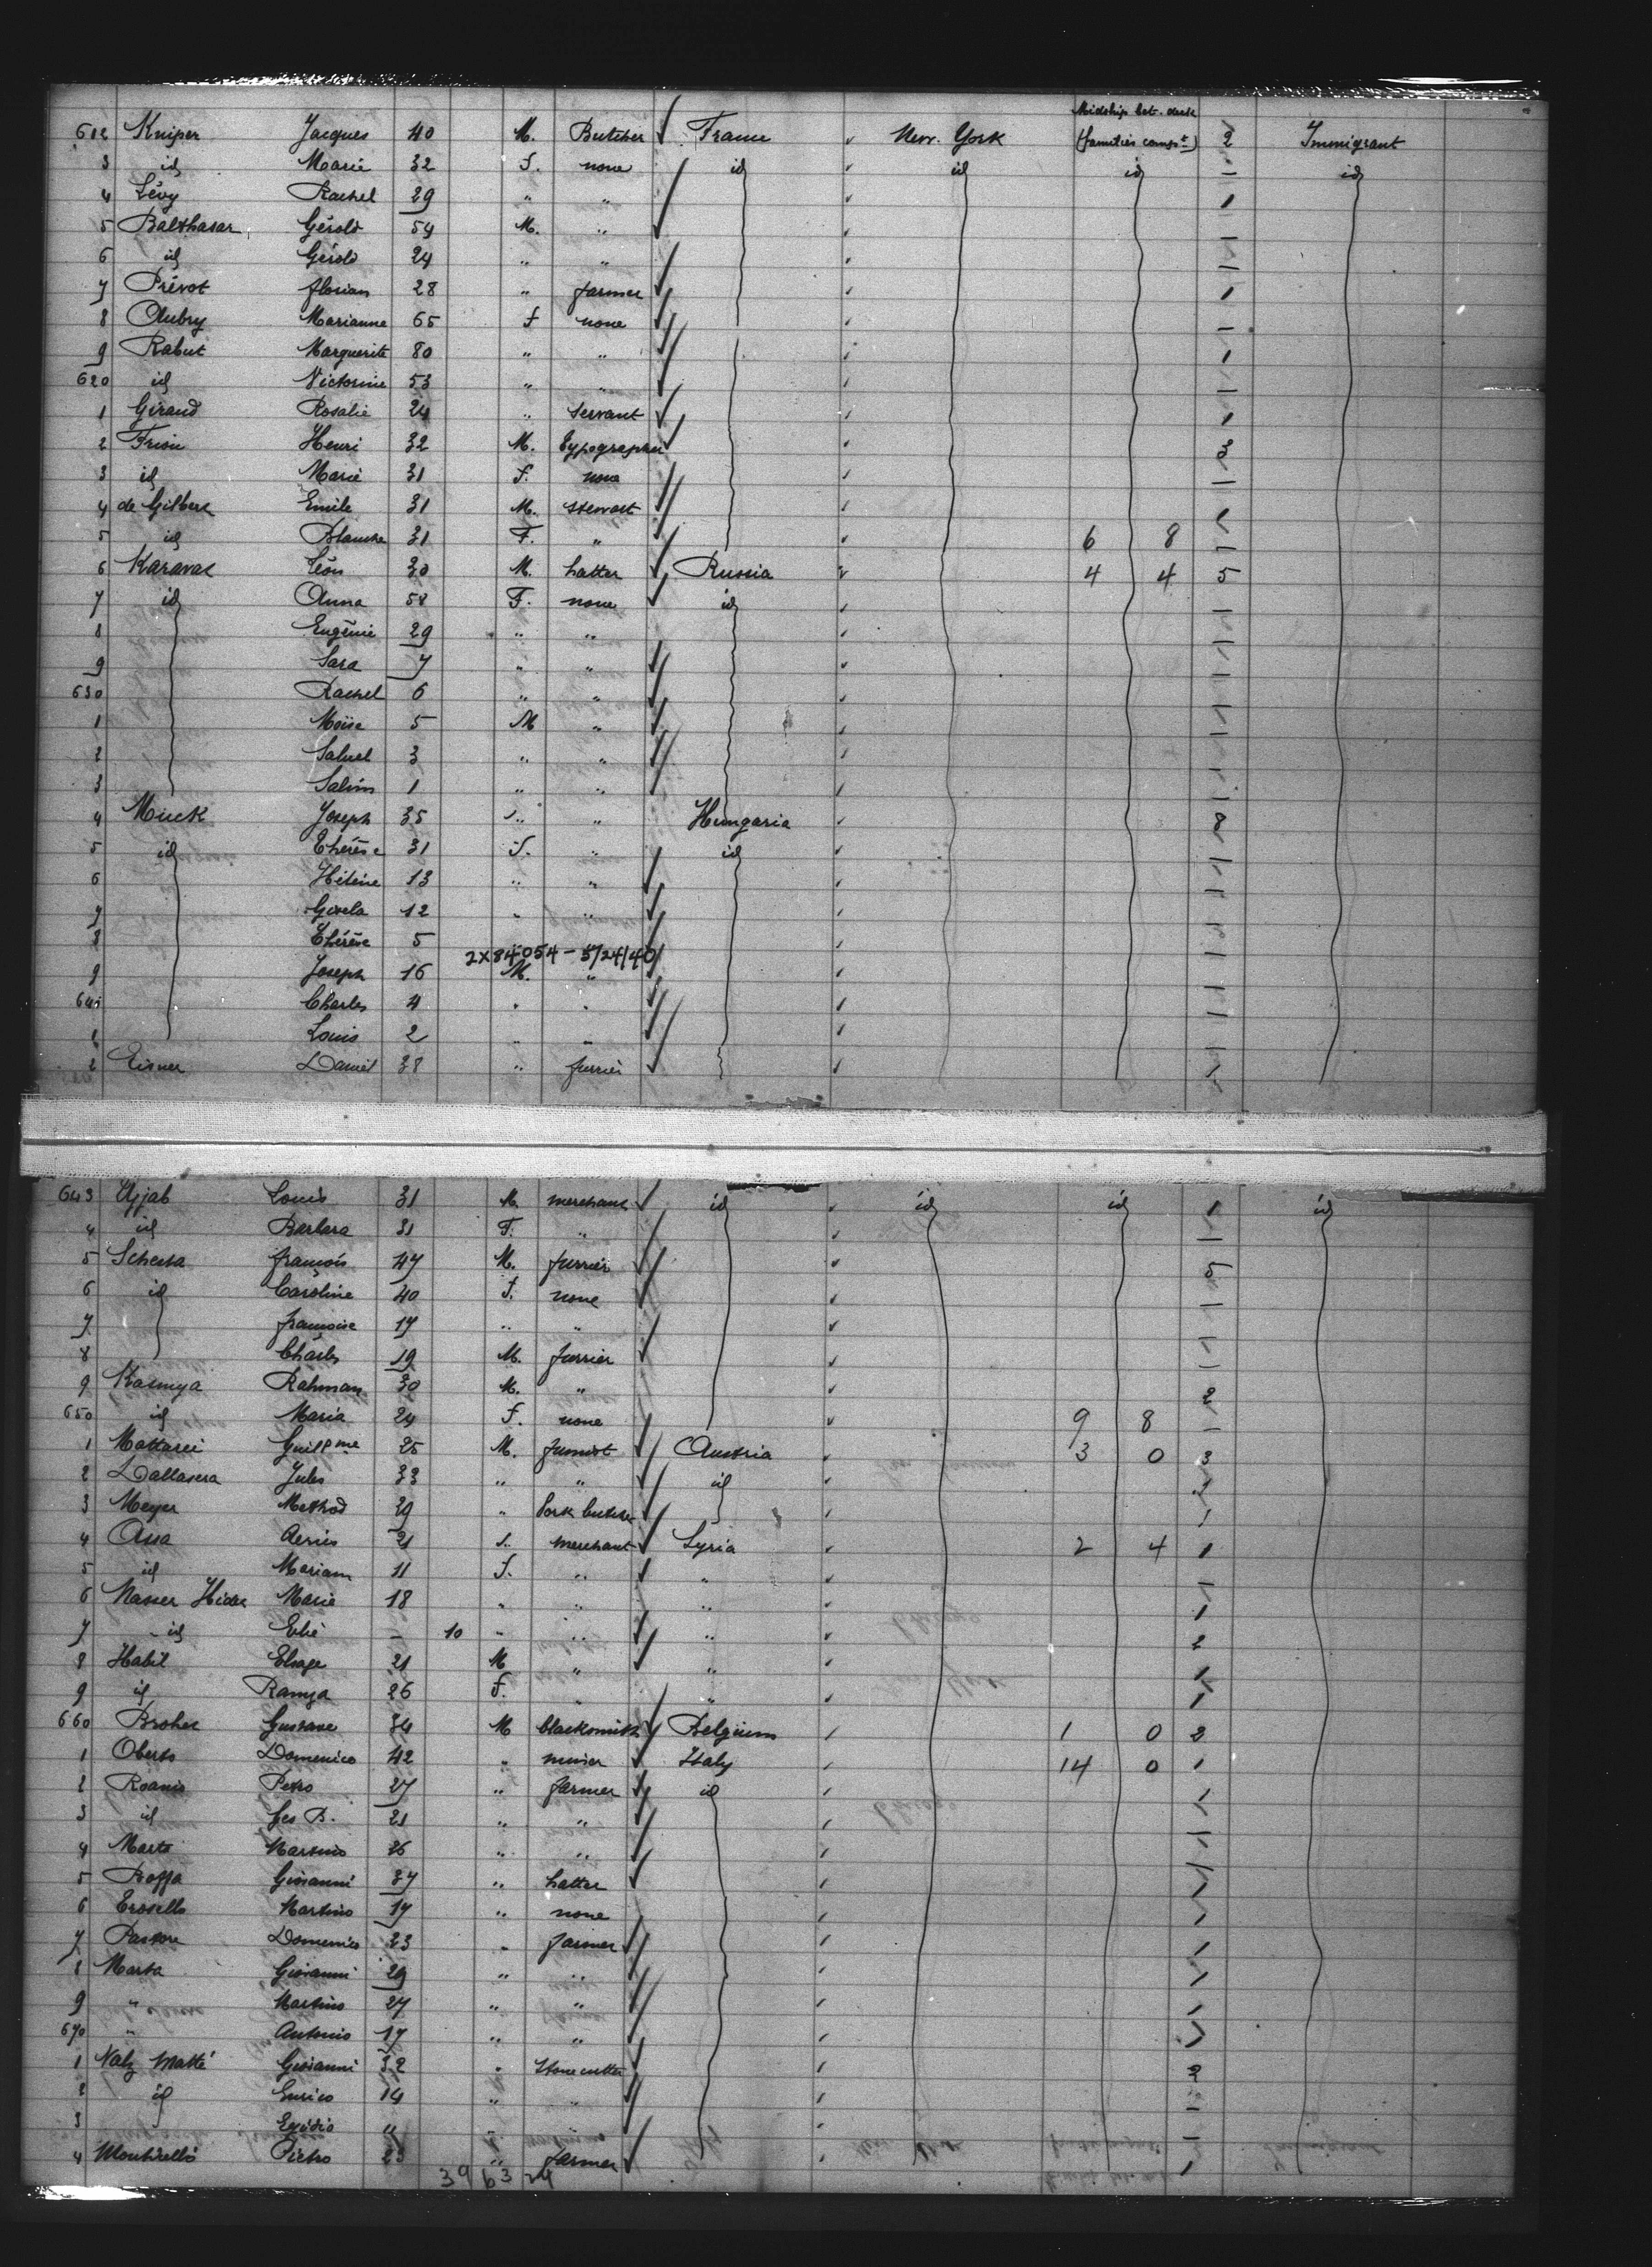 Midship bet. deck
612 Kniper Jacques 40 M. Butcher France New York (families compt) 2 Immigrant
3 id Marie 32 F. none id id id id
4 Lévy Rachel 29 " " 1
5 Balthasar Gérold 54 M. "
6 id Gérold 24 " "
7 Prévot florian 28 " farmer 1
8 Aubry Marianne 65 F none
9 Rabut Marguerite 80 " " 1
620 id Victorine 53 " "
1 Giraud Rosalie 24 " Servant 1
2 Henri 32 M. Typographer 3
3 id Marie 31 F. none
4 de Gilbert Emile 31 M. Stewart 1
5 id Blanche 31 F. " 6 8
6 Léon 30 M. hatter Russia 4 4 5
7 id Anna 58 F. none id
8 Eugénie 29 " "
9 Sara 7 " "
630 Rachel 6 " "
1 Moïse 5 M "
2 3 " "
3 1 " "
4 Muck Joseph 35 " Hungaria 8
5 id Thérèse 31 F. " id
6 Hélène 13 " "
7 Gisela 12 " "
8 Thérèse 5
2X84054 - 5/24/40
9 Joseph 16 M. "
640 Charles 4 " "
1 Louis 2 " "
2 Eisner Daniel 38 " furrier
643 Louis 31 M. merchant id id id 1 id
4 id Barbara 31 F. "
5 françois 47 M. furrier 5
6 id Caroline 40 F. none
7 françoise 17 " "
8 Charles 19 M. furrier
9 Rahman 30 M. " 2
650 id Maria 24 F. none 9 8
1 25 M. Austria 3 0 3
2 Dallasera Jules 33 " " id
3 Meyer 29 " Pork butcher 1
4 Assa 21 merchant Syria 2 4 1
5 id Mariam 11 F. " "
6 Nasser Marie 18 " " " 1
7 id 10 " " " 2
8 Habil 21 M " " 1
9 id 26 F. " " 1
660 Gustave 34 M blacksmith Belgium 1 0 2
1 Domenico 42 " miner Italy 14 0 1
2 27 " farmer id 1
3 id 21 " "
4 Martino 26 " "
5 Giovanni 37 " hatter 1
6 Martino 17 " none 1
7 Pastore Domenico 23 " farmer 1
8 Giovanni 29 " " 1
9 " Martino 27 " " 1
670 " Antonio 17 " " 1
1 Giovanni 32 " Stone cutter 3
2 id Enrico 14 " "
3 Egidio 11 "
4 Pietro 23 " farmer 1
39 63 24